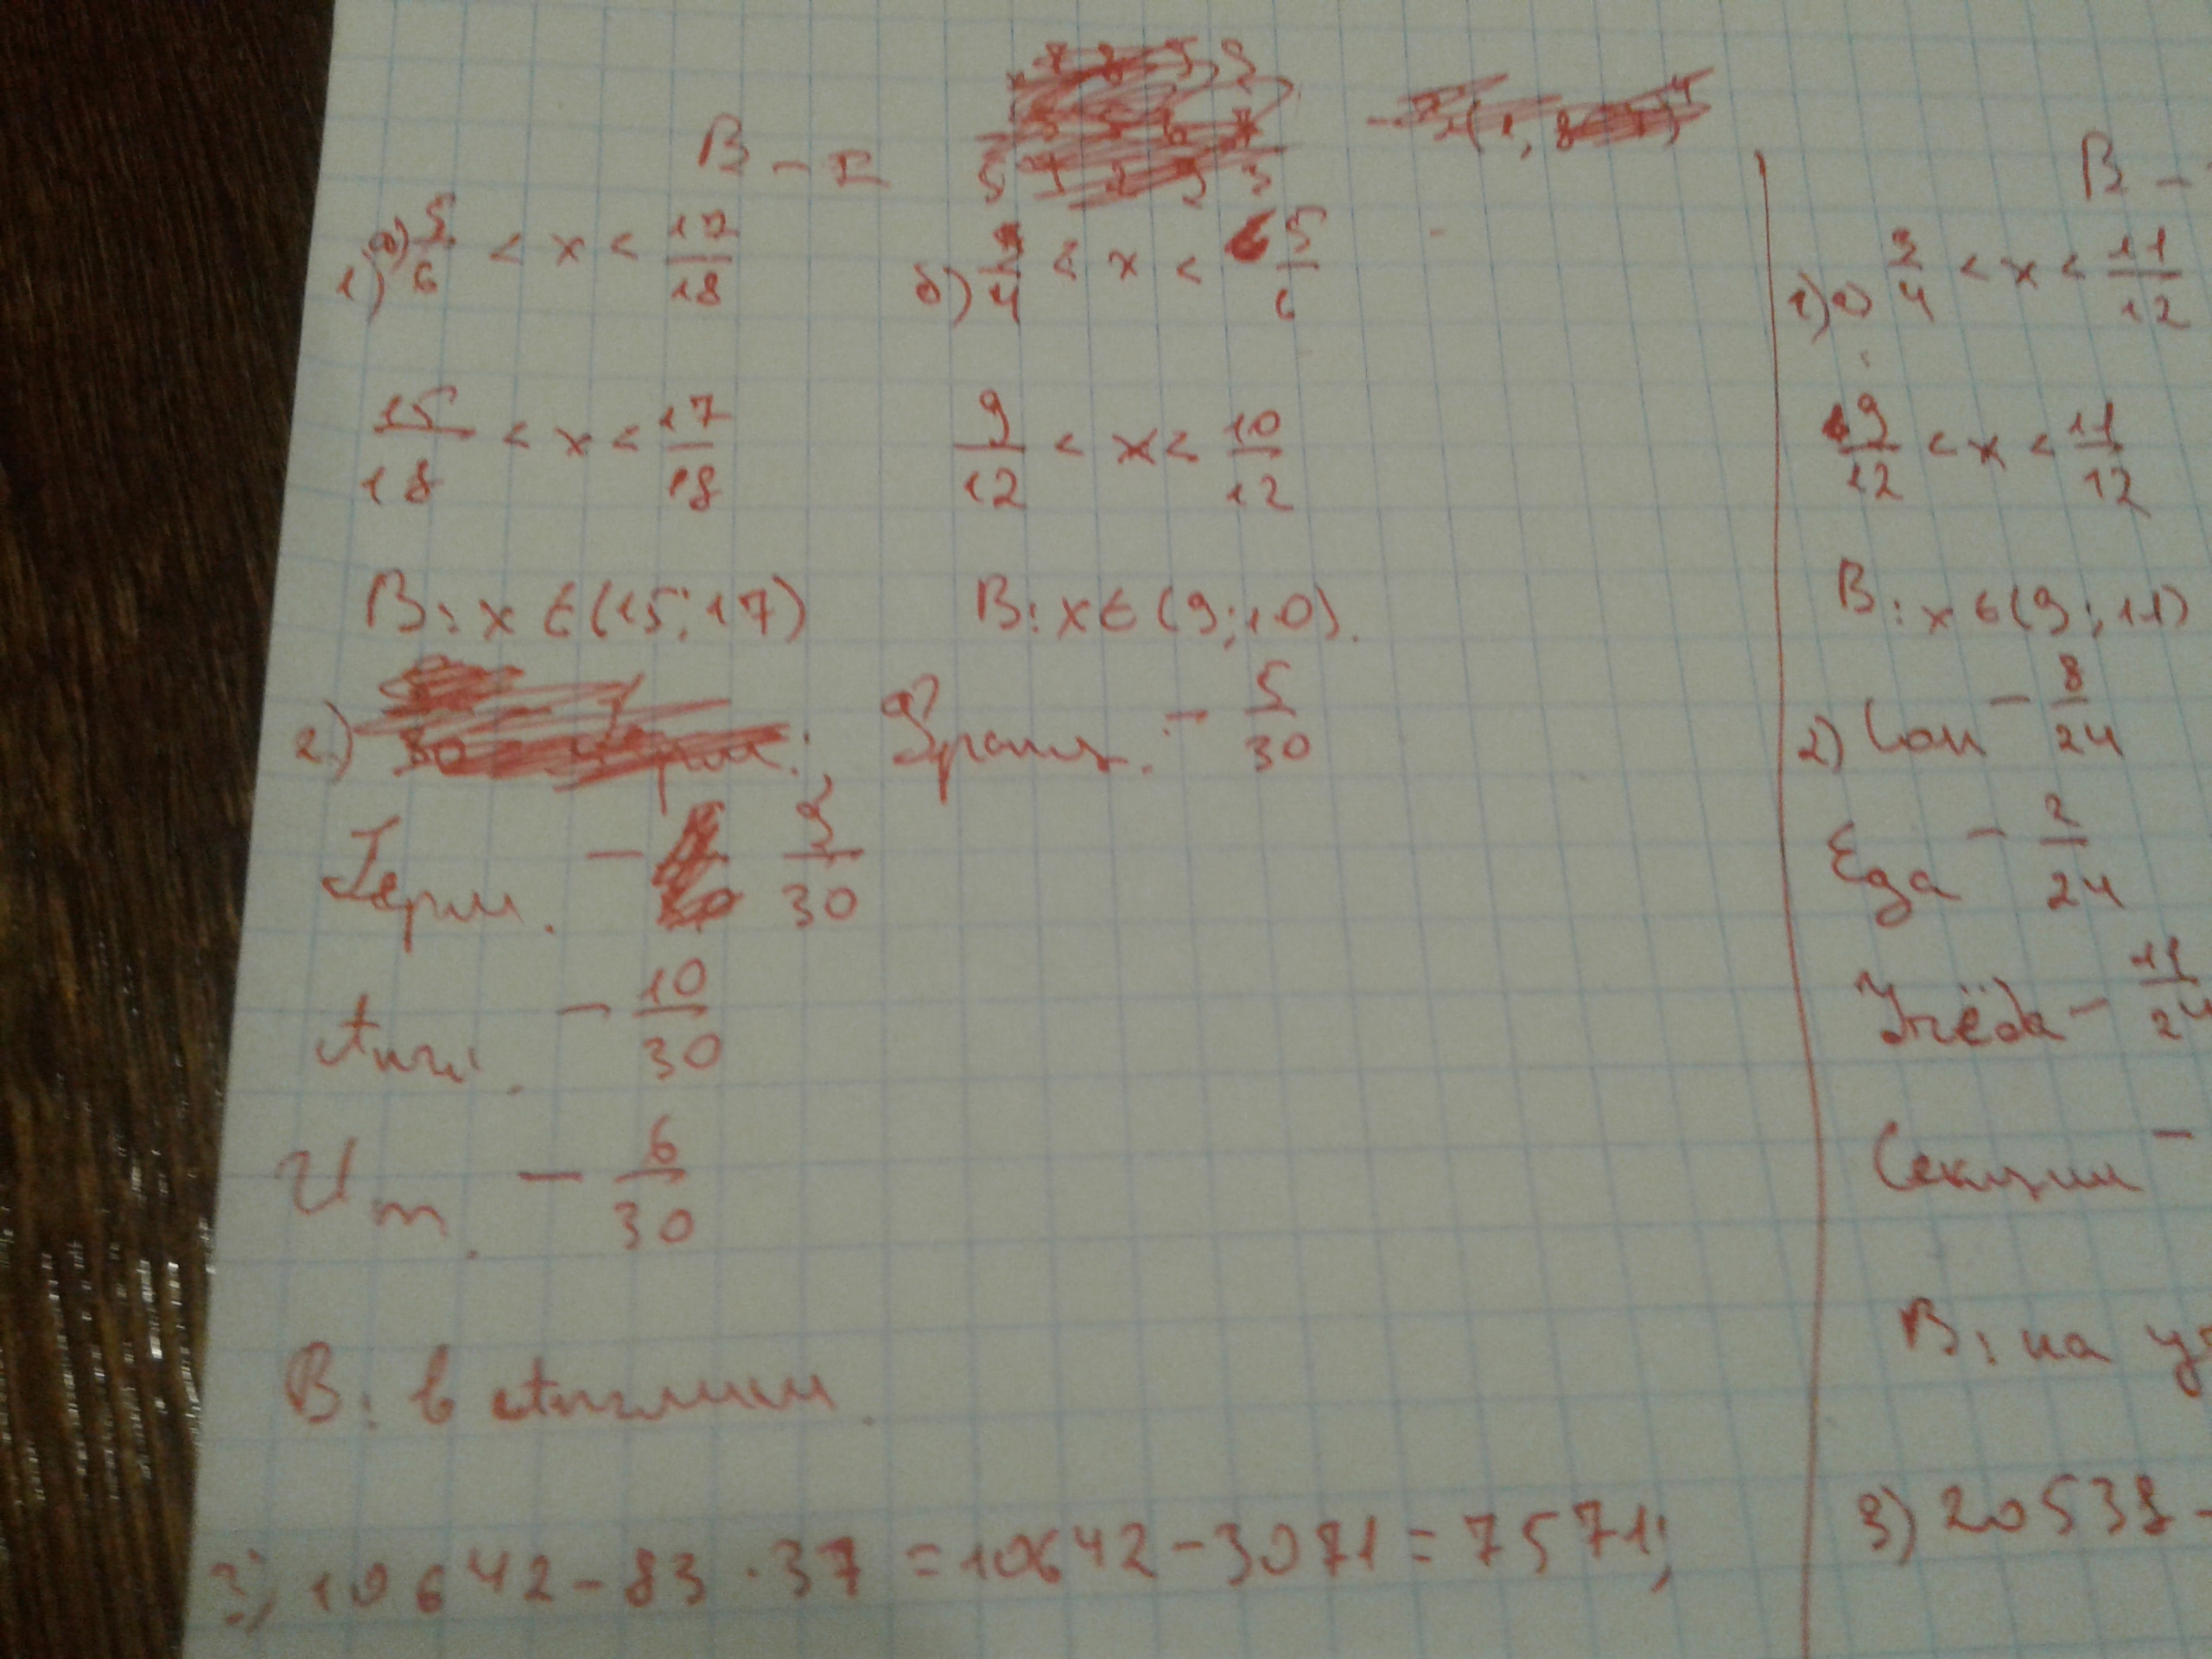 В – I
1) а) 5/6 < x < 17/18 б) 3/4 < x < 5/6
15/18 < x < 17/18 9/12 < x < 10/12
В: x ∈ (15; 17) В: x ∈ (9; 10).
2.) Франц. – 5/30
Герм. – 3/30
Англ. – 10/30
Ит. – 6/30
В: в Англии.
3) 10642 – 83 · 37 = 10642 – 3071 = 7571;
В –
1) а) 3/4 < x < 11/12
9/12 < x < 11/12
В: x ∈ (9; 11)
2) Сон – 8/24
Еда – 2/24
Учёба – 11/24
Секции –
В: на у
3) 20538 –